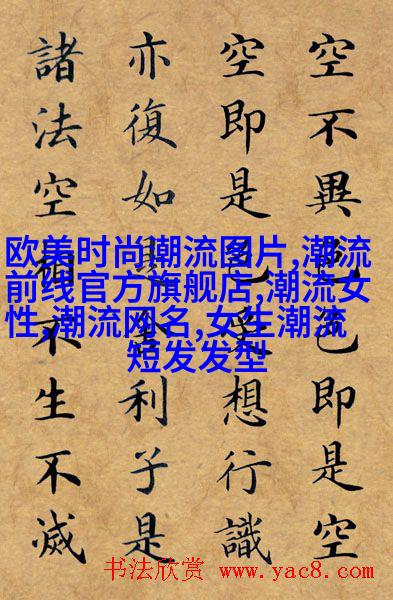 空不異色色即是空
空即是色受想行識
亦復如是舍利子是
諸法空相不生不滅
欧美时尚潮流图片,潮流
前线官方旗舰店,潮流女
性,潮流网名,女生潮流
短发发型
书法欣赏 www.yac8.com